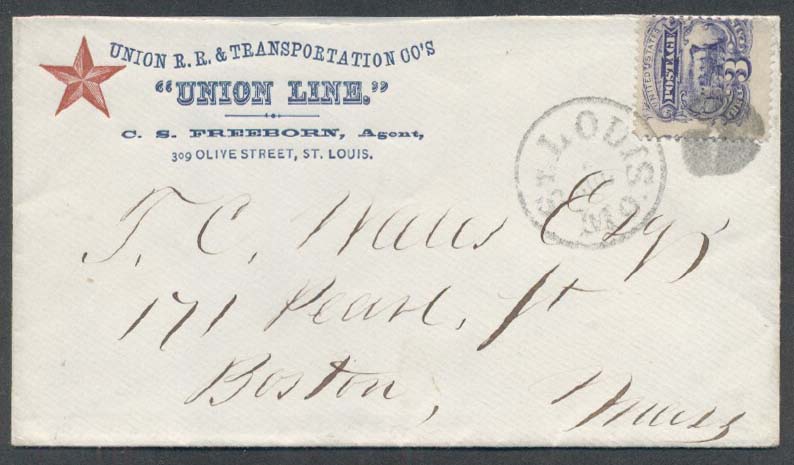 UNION R. R. & TRANSPORTATION CO'S
"UNION LINE."
C. S. FREEBORN, Agent,
309 OLIVE STREET, ST. LOUIS.
UNITED STATES
POSTAGE
3
ST. LOUIS. MO.
T. C. Wales Esqr
171 Pearl, St
Boston, Mass